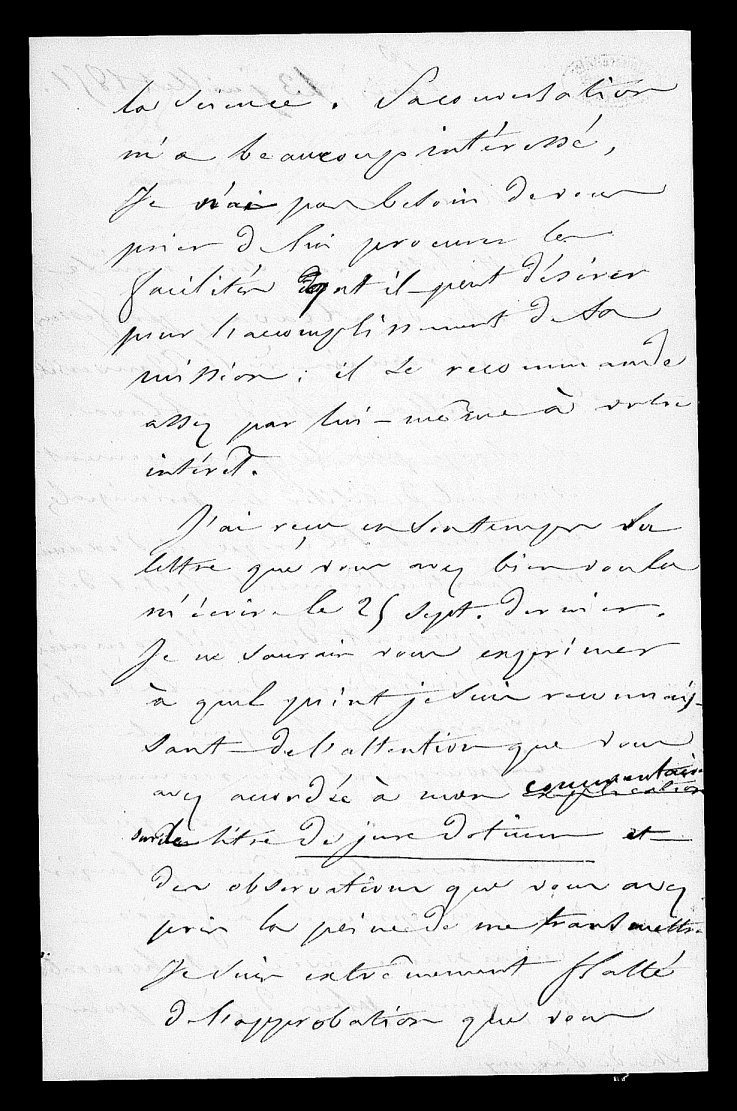 la science. Sa conversation
m'a beaucoup intéressé,
Je n'ai pas besoin de vous
prier de lui procurer les
facilités dont il peut désirer
pour l'accomplissement de sa
mission; il se recommande
assez par lui-même à votre
intérêt.
J'ai reçu en son temps la
lettre que vous avez bien voulu
m'écrire le 25 sept. dernier.
Je ne saurais vous exprimer
à quel point je suis reconnais-
sant de l'attention que vous
avez accordée à mon commentaire
sur le titre de jure dotium et
des observations que vous avez
pris la peine de me transmettre
Je suis extrêmement flatté
de l'approbation que vous